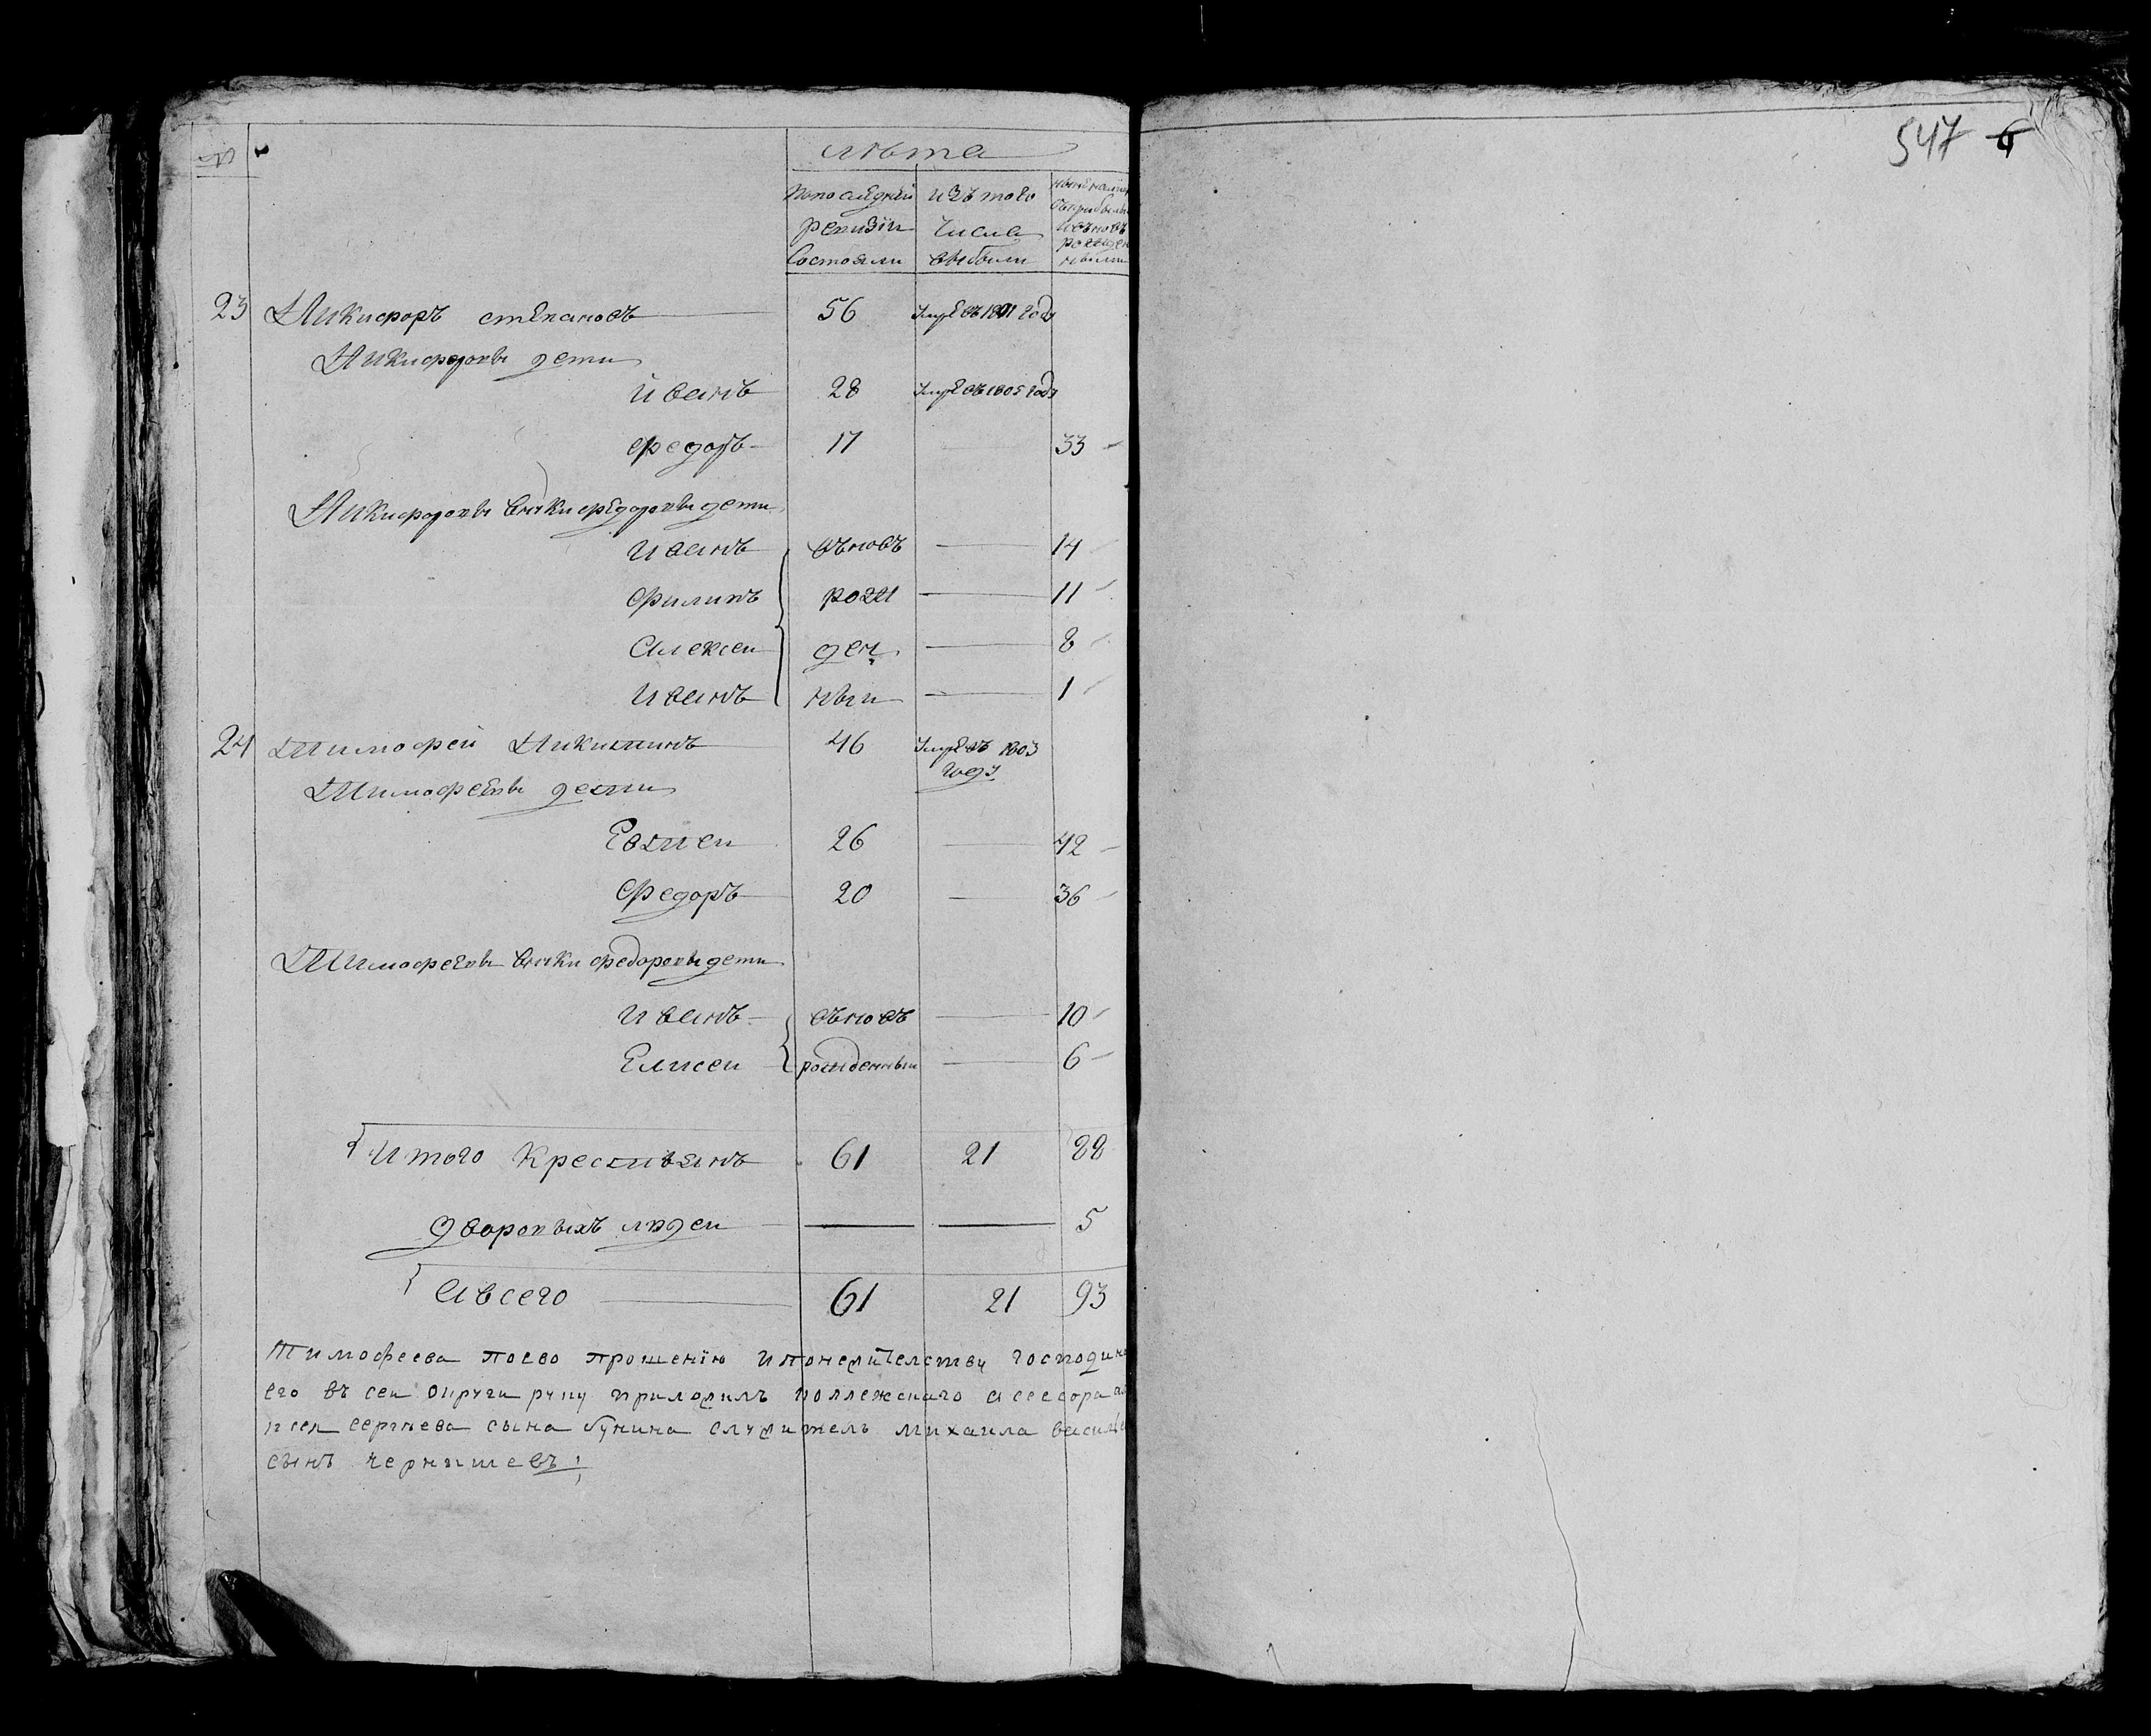 547 6
№
лѣта
попоследней ревизiи состояли
изъ того числа выбыли
ныне налицо съприбылыми исновъ рожденными
23 Никифоръ степановъ 56 умре въ 1801 году
Никифоровы дети
иванъ 28 умре въ 1805 году
федоръ 17 33
Никифоровы внуки федоровы дети
иванъ вновъ 14
филипъ рож 11
Алексеи ден 8
иванъ ныи 1
24 Тимофей Никитинъ 46 умре въ 1803 году
Тимофеевы дети
Евтеи 26 42
Федоръ 20 36
Тимофеевы внуки федоровы дети
иванъ вновъ 10
Елисеи рожденныи 6
Итого крестьянъ 61 21 88
дворовыхъ людеи 5
Авсего 61 21 93
Тимофеева поево прошенiю ипонемителству господина
его въ сеи руку приложилъ коллежскаго асессора
сергѣева сына бунина служитель михаила
сынъ чернышевъ: